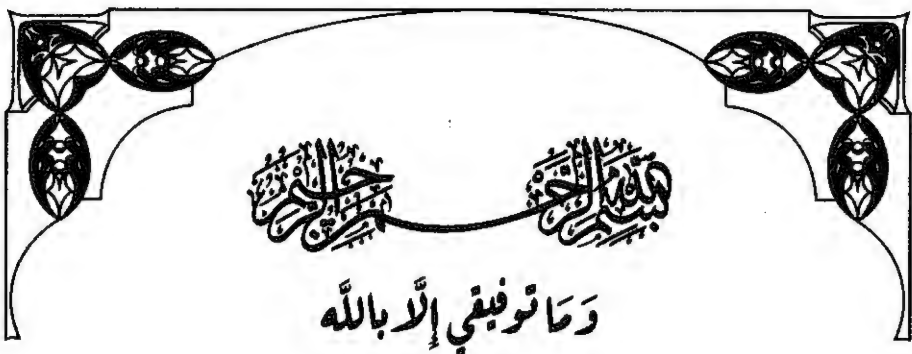 بسم الله الرحمن الرحيم
وَمَا توفيقي إِلَّا بالله